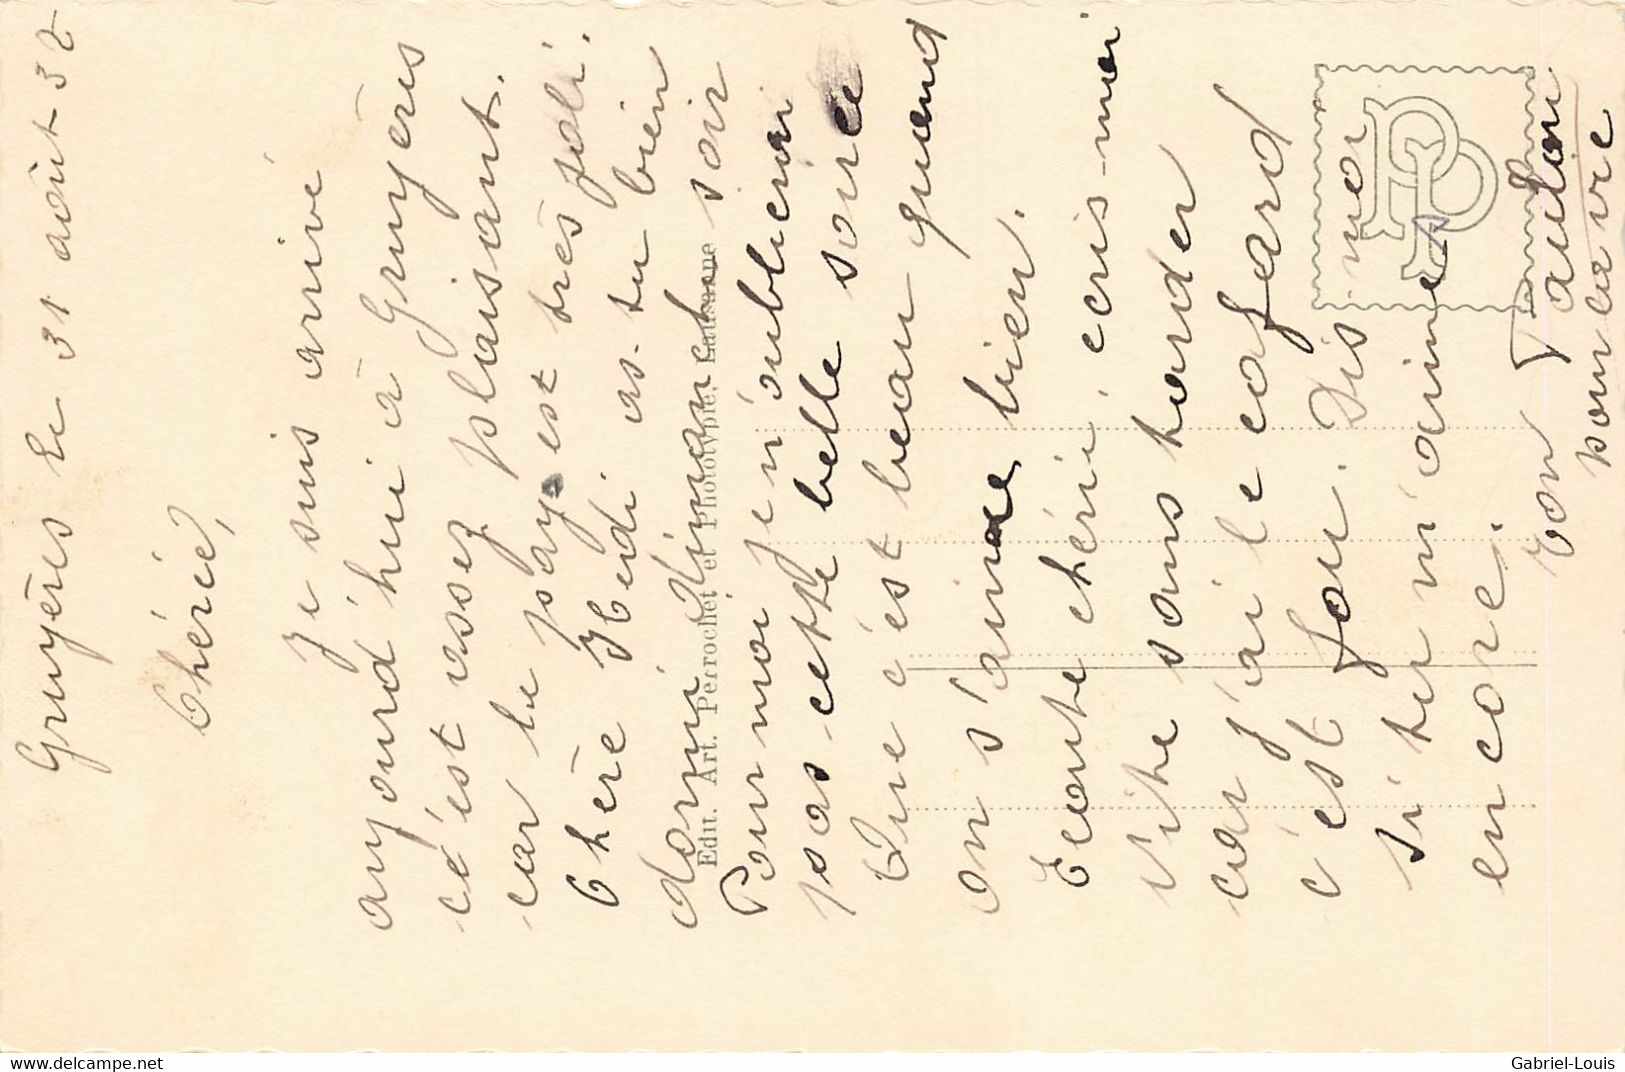 Gruyères le 31 août 32
Chérie,
Je suis arrivé
aujourd'hui à Gruyères
c'est assez plaisant.
car le pays est très joli.
Chère Hedi as-tu bien
dormi dimanche soir
Pour moi je n'oublierai
pas cette belle soirée
Que c'est beau quand
on s'aime bien.
Ecoute chérie écris-moi
vite sans tarder
car j'ai le cafard
c'est fou. Dis moi
si tu m'aimes
encore.
Ton
pour la vie
Edit. Art. Perrochet et Phototypie, Lausanne
PP
www.delcampe.net
Gabriel-Louis